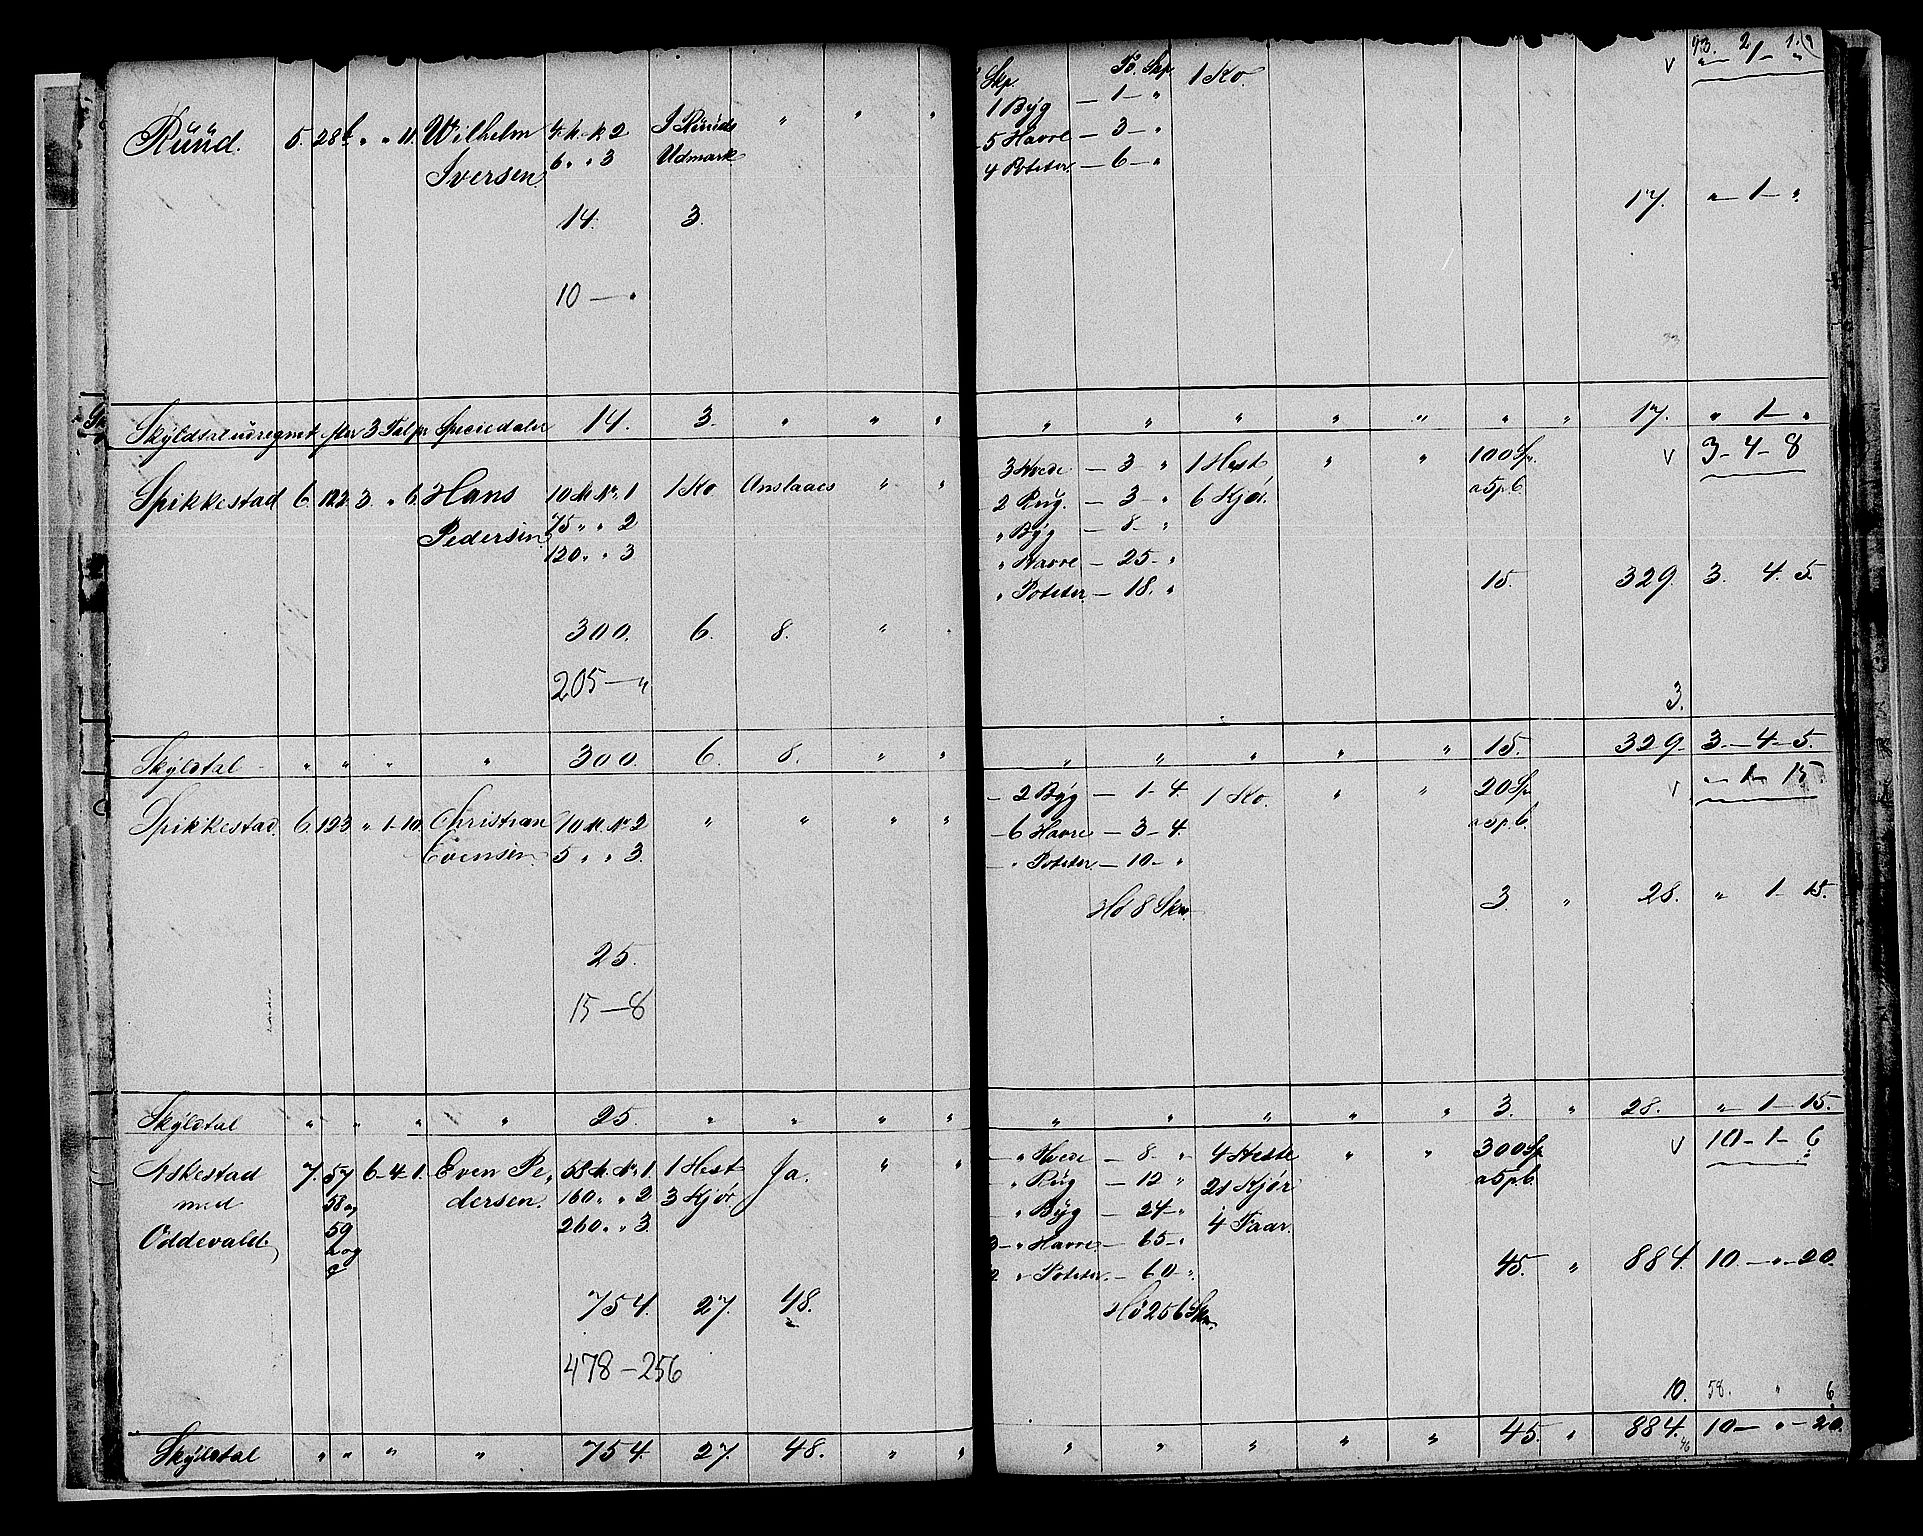 Rüüd. 5. 28b " " 11. Wilhelm 4 M. № 2 I Rüüds " " "
Iversen. 6 " " 3 Udmark
14. 3.
10 — "
Skp. Tö. Skp. 1 Ko. v
1 Byg — 1 — "
5 Havre — 3 — "
4 Poteter — 6 — "
17. " — 1 — "
Skyldtal udregnet efter 3 Tal pr Speciedaler 14. 3. " " " " " " " " " " 17. " 1 — "
Spikkestad 6. 122. 3. " 6. Hans 10 M. № 1 1 Ko Anstaaes " "
Pedersen. 75 " " 2
120 " " 3
300. 6. 8. " "
205 — "
3 Hvede — 3 " 1 Hest " " 100 Sp. v 3 — 4 — 8
2 Rug. — 3 — " 6 Kjør a 5 p. b.
" Byg — 8 — "
" Havre — 25 — "
" Poteter — 18. " 15. 329. 3. 4. 5.
3.
Skyldtal " " " " 300. 6. 8. " " " " " " " 15. 329. 3. — 4 — 5.
Spikkestad. 6. 123 " 1 — 10. Christian 10 M. № 2 " " " "
Evensen. 5 " " 3.
25.
15 — 8
— 2 Byg — 1 — 4. 1 Ko. " " 20 Sp v " 1 — 15.
— 6 Havre — 3 — 4. a 5 p. b.
— " Poteter — 10 — "
Hö 8 Skp. 3. " 28. " 1 — 15.
Skyldtal " " " " 25. " " " " " " " " " 3. " 28. " — 1 — 15.
Askestad 7. 57 6 — 4 — 1. Even Pe- 58 M. № 1. 1 Hest Ja. " "
med 58 a, dersen. 160 " " 2 3 Kjør
Oddevald, 59 260 " " 3.
a og
c
754. 27. 48.
478 — 256
— " Hvede — 8. " 4 Heste " " 300 Sp v 10 — 1 — 6
— " Rug — 12 " 21 Kjør a 5 p. b.
— " Byg — 24 — " 4 Faar.
3 — " Havre. — 65 — "
2 " Poteter. — 60 — " 45. " 884. 10. — " — 20.
Hö 256 Skp.
10. 58. " 6
Skyldtal " " " " 754. 27. 48. " " " " " " " 45. " 884. 10 — " — 20.